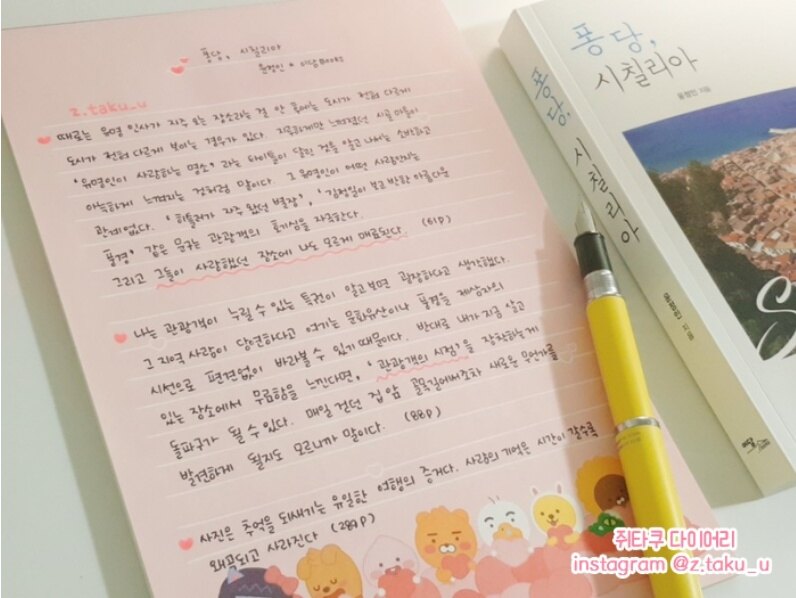 퐁당, 시칠리아
윤정인 * 이담Books
z.taku_u
때로는 유명 인사가 자주 오는 장소라는 걸 안 후에는 도시가 전혀 다르게
도시가 전혀 다르게 보이는 경우가 있다. 지루하게만 느껴졌던 시골 마을이
'유명인이 사랑하는 명소' 라는 타이틀이 달린 것을 알고 나서는 소박하고
아늑하게 느껴지는 것처럼 말이다. 그 유명인이 어떤 사람인지는
관계없다. '히틀러가 자주 왔던 별장', '김정일이 보고 반한 아름다운
풍경' 같은 문구는 관광객의 호기심을 자극한다.
그리고 그들이 사랑했던 장소에 나도 모르게 매료된다. (61p)
나는 관광객이 누릴 수 있는 특권이 알고보면 굉장하다고 생각했다.
그 지역 사람이 당연하다고 여기는 문화유산이나 풍경을 제삼자의
시선으로 편견없이 바라볼 수 있기 때문이다. 반대로 내가 지금 살고
있는 장소에서 무료함을 느낀다면, '관광객의 시점'을 장착하는게
돌파구가 될 수 있다. 매일 걷던 집 앞 골목길에서조차 새로운 무언가를
발견하게 될지도 모르니까 말이다. (88p)
사진은 추억을 되새기는 유일한 여행의 증거다. 사람의 기억은 시간이 갈수록
왜곡되고 사라진다 (289p)
퐁당,
시칠리아
윤정인 지음
퐁당,
시칠리아
쥐타쿠 다이어리
instagram @z.taku_u